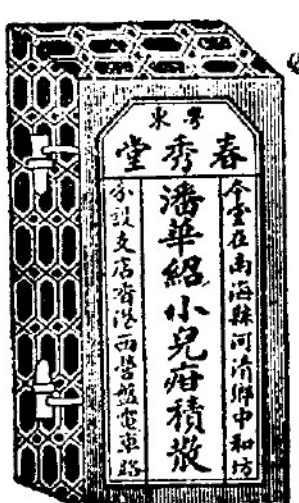 粤東
春秀堂
今堂在南海縣河清鄉中和坊
潘華紹小兒疳積散
分設支店香港西營盤電車路